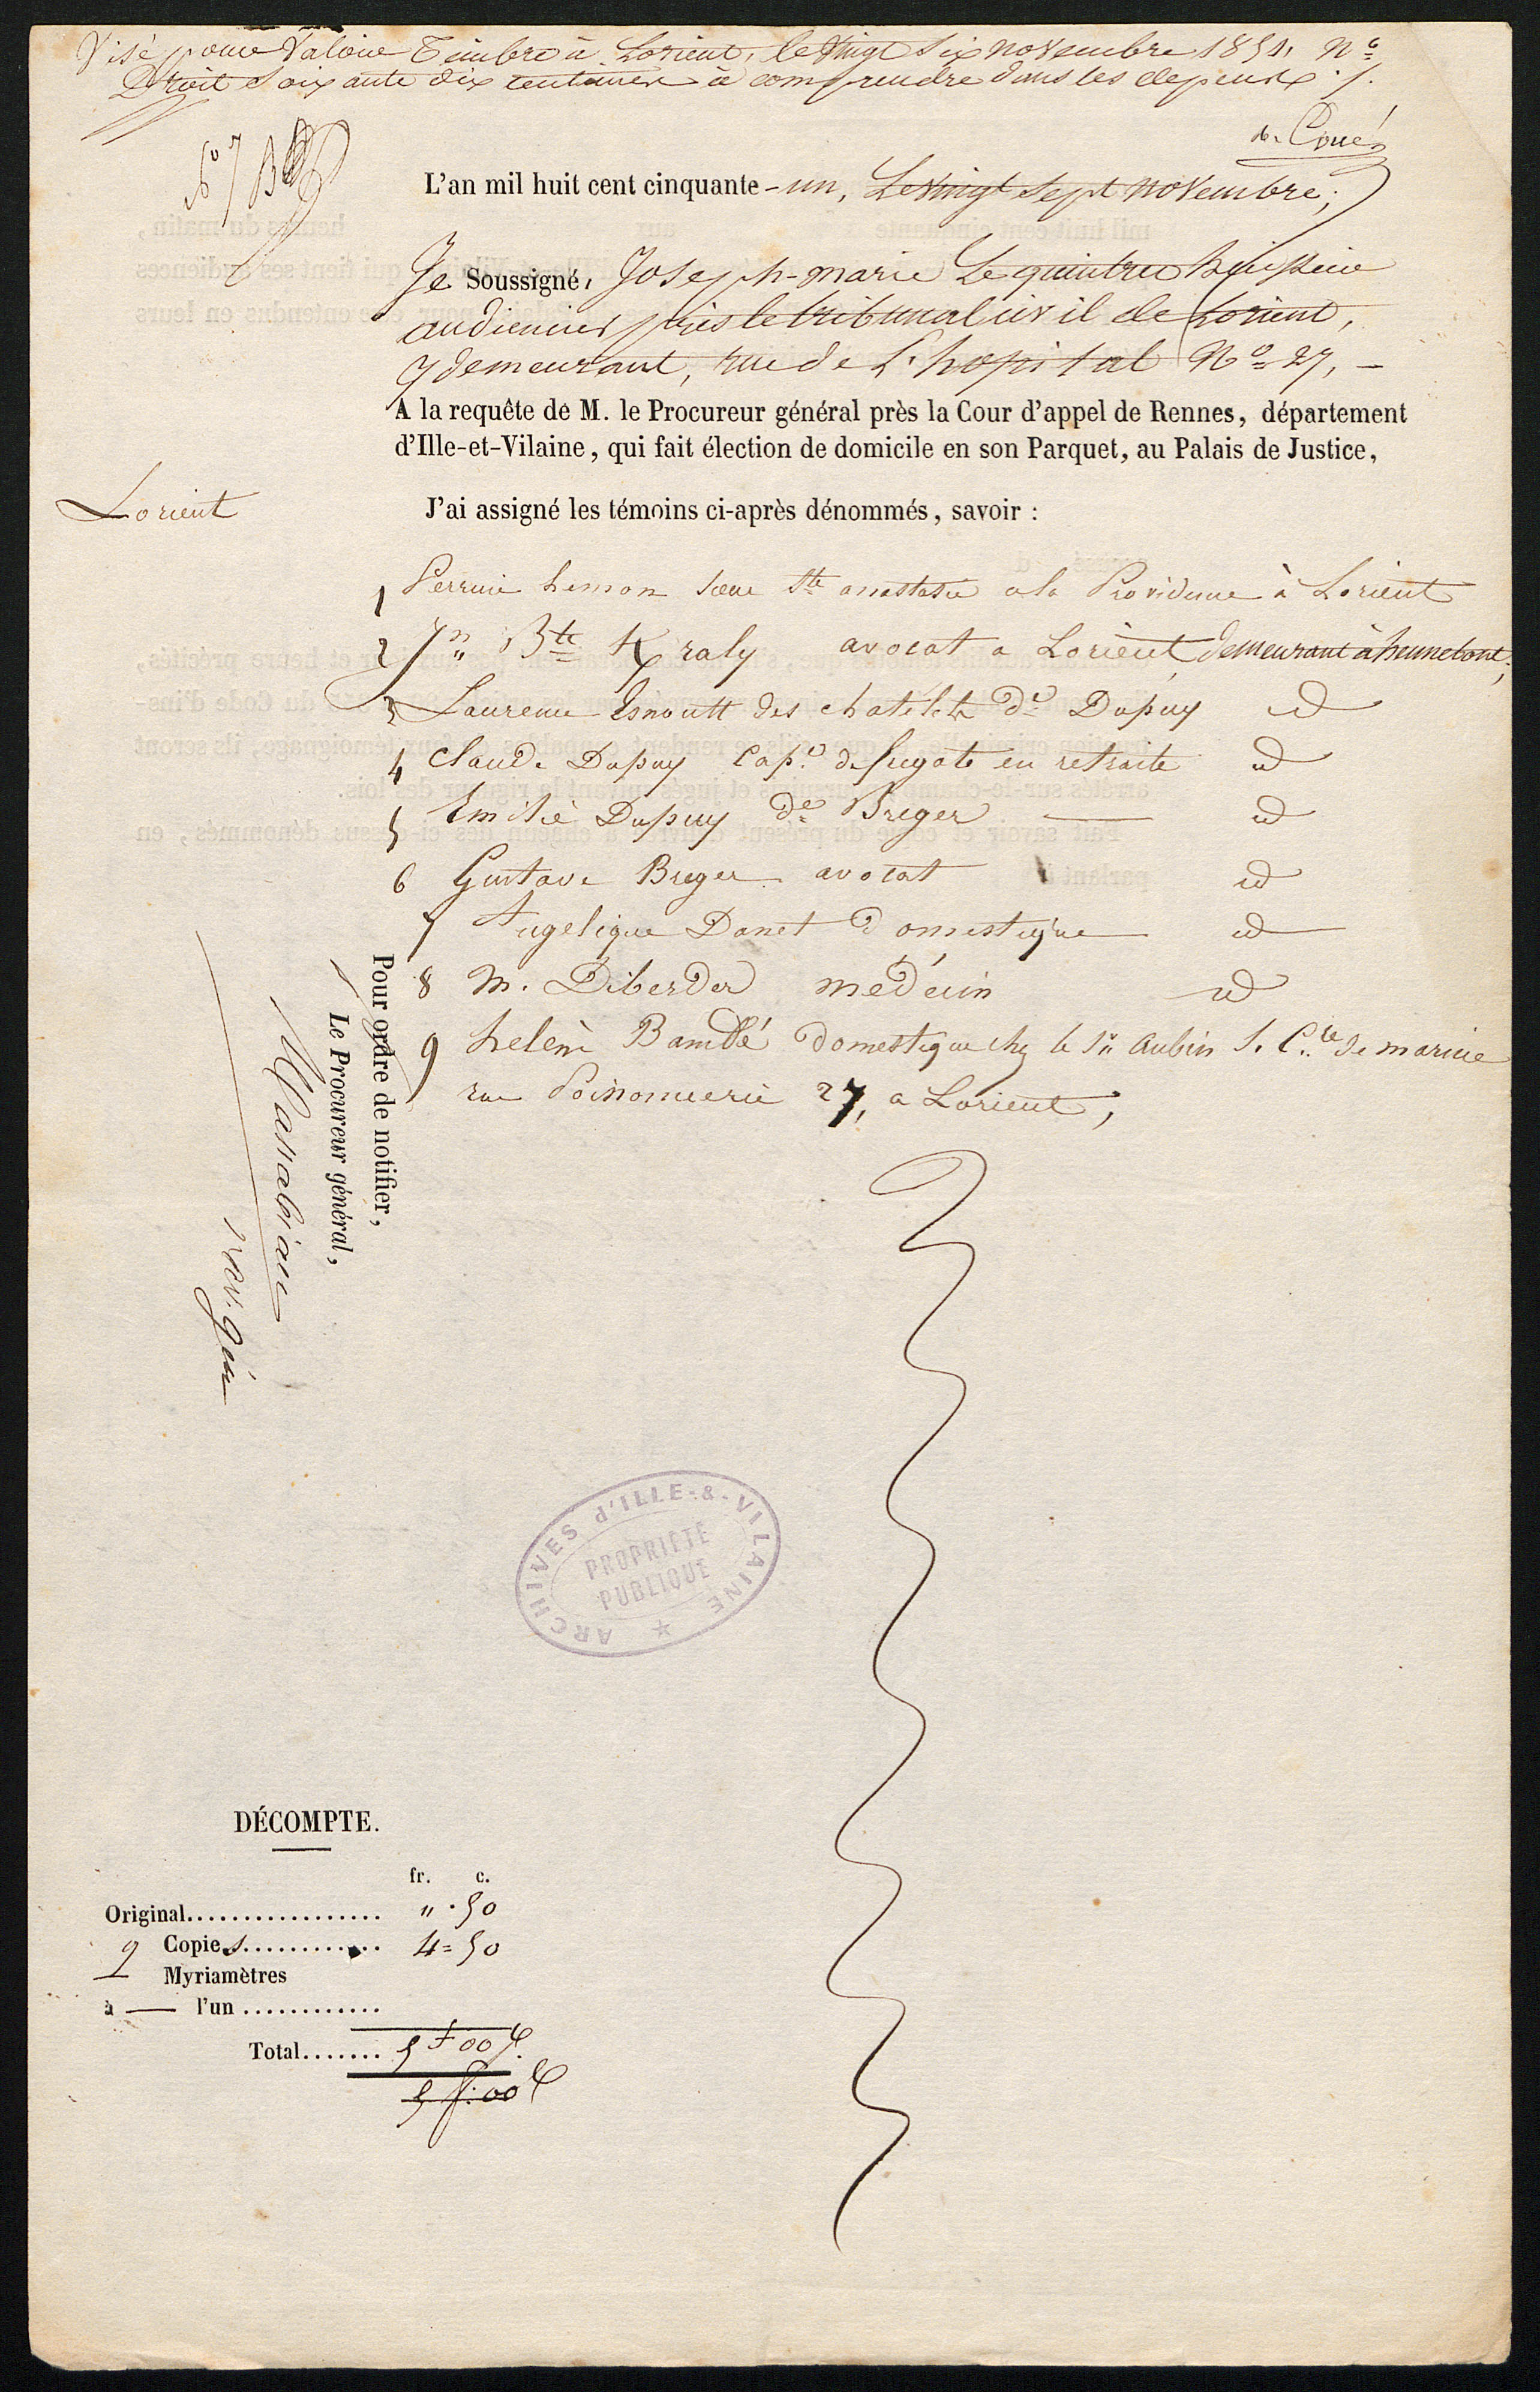 Visé pour Valoir Timbre à Lorient, le Vingt Six novembre 1851, N°
Droit Soixante dix centimes à comprendre dans les depens ./.
de Coué
L'an mil huit cent cinquante - un, Le Vingt Sept novembre;
Je Soussigné, Joseph-marie Le quintrec huissier
audiencier près le tribunal civil de Lorient,
y demeurant, rue de L'hopital N° 27, -
A la requête de M. le Procureur général près la Cour d'appel de Rennes, département
d'Ille-et-Vilaine, qui fait élection de domicile en son Parquet, au Palais de Justice,
Lorient
J'ai assigné les témoins ci-après dénommés, savoir :
1 Perrine hemon sœur Ste anastasie a la Providence à Lorient
2 Jn Bte Kraly avocat a Lorient, demeurant à hennebont;
3 Laurence Esnoult des chatelets de Dupuy id
4 Claude Dupuy Cap.e de fregate en retraite id
5 Emilie Dupuy de Breger id
6 Gustave Breger avocat id
7 Angelique Danet Domestique id
8 M. Diberder médecin id
9 helène domestique chez le Sr Aubin S. C.re de marine
rue Poissonnerie 27, a Lorient,
Pour ordre de notifier,
Le Procureur général,
Massabiau
ARCHIVES d'ILLE-&-VILAINE
PROPRIÉTÉ
PUBLIQUE
DÉCOMPTE.
fr. c.
Original................. " . 50
9 Copies............ 4 = 50
Myriamètres
à — l'un ............
Total....... 5 f 00 c.
5 f. 00 c